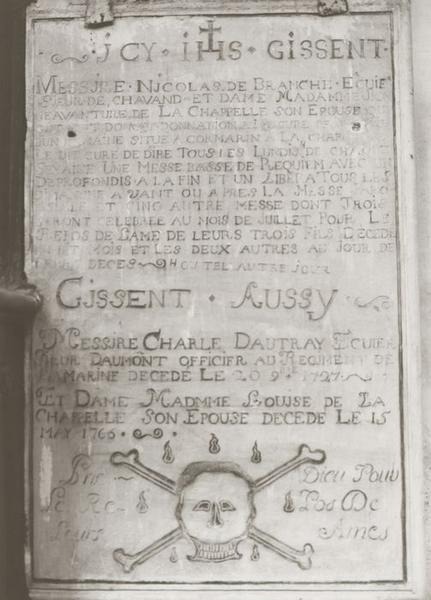 ICY IHS GISSENT
MESSIRE NICOLAS DE BRANCHE ECUIE
SIEUR DE CHAVAND ET DAME MADAMME
BEAVENTURE DE LA CHAPPELLE SON EPOUSE
DONNATION A
UN DOMAINE SITUE A CORMARIN A LA CHAR
LE DIT CURE DE DIRE TOUS LES LUNDIS DE CHA
UNE MESSE BASSE DE REQUIEM AVEC UN
DEPROFONDIS A LA FIN ET UN LIBERA TOUS LES
AVANT OU APRES LA MESSE
ET CINQ AUTRE MESSE DONT TROIS
SERONT CELEBREE AU MOIS DE JUILLET POUR LE
REPOS DE LAME DE LEURS TROIS FILS DECEDE
MOIS ET LES DEUX AUTRES AU JOUR DE
DECES OU TEL AUTRE JOUR
GISSENT AUSSY
MESSIRE CHARLE DAUTRAY ECUIER
SIEUR DAUMONT OFFICIER AU REGIMENT DE
MARINE DECEDE LE 20 9 1727
ET DAME MADMME LOUISE DE LA
CHAPELLE SON EPOUSE DECEDE LE 15
MAY 1766
Dieu Pour
Le Re Pos De
Leurs Ames